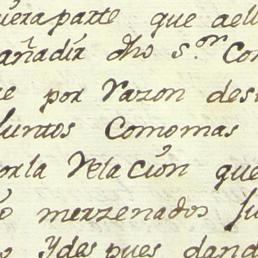 uiera parte que aell
añadir dho s.or Con
e por razon des
juntos Comomas
por la Relacion que
merzenados su
o ydespues dand